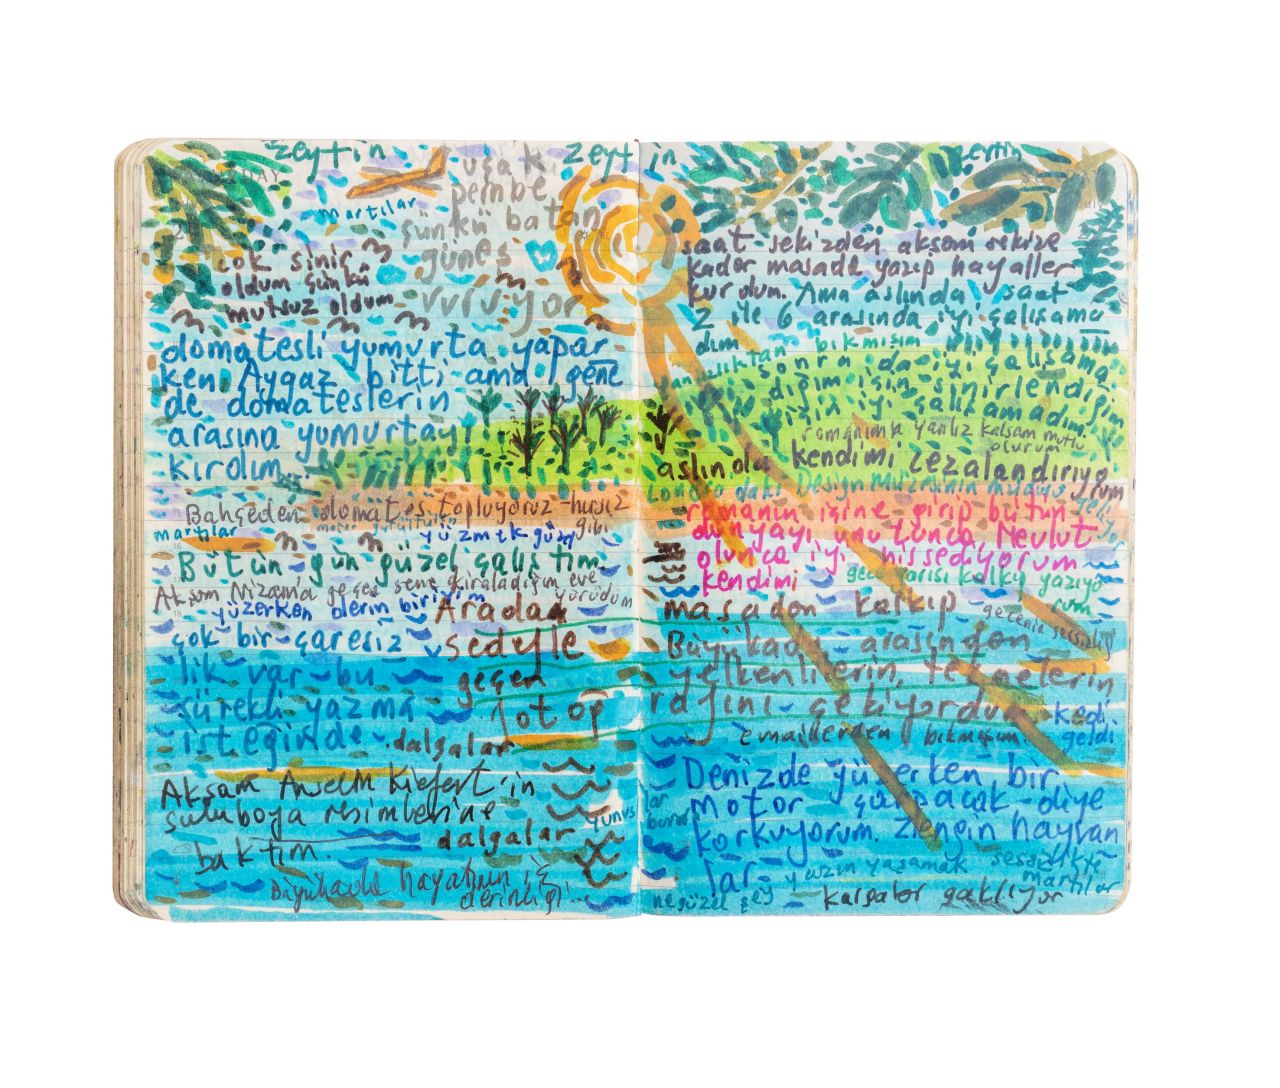 zeytin
zeytin
zeytin
DAY
martılar
uçak
pembe
çünkü batan
güneş
vuruyor
çok sinir
oldum çünkü
mutsuz oldum
domatesli yumurta yapar
ken Aygaz bitti ama gene
de domateslerin
arasına yumurtayı
kırdım.
Bahçeden domates topluyoruz - hırsız
gibi
martılar
yüzmek güzel
Bütün gün güzel çalıştım
Akşam Nizam'a geçen sene kiraladığım eve
yürüdüm
yüzerken derin biriyim
çok bir çaresiz
lik var bu
sürekli yazma
isteğinde.
Aradan
sedefle
geçen
dalgalar
Akşam Anselm Kiefert'in
suluboya resimlerine
baktım.
dalgalar
yunus
Büyükada hayatının iç
derinliği...
saat sekizden akşam sekize
kadar masada yazıp hayaller
kurdum. Ama aslında saat
2 ile 6 arasında iyi çalışama
dım
bıkmışım
sonra da iyi çalışama
dığım için sinirlendiğim
için iyi çalışamadım.
romanımla yalnız kalsam mutlu
olurum
aslında kendimi cezalandırıyo
rum
Londra'daki Design Müzesinin
romanın içine girip bütün
dünyayı unutunca Mevlut
olunca iyi hissediyorum
kendimi
gece yarısı kalkıp yazıyo
rum
masadan kalkıp
gecenin sessizliği
Büyükada arasından
yelkenlilerin, teknelerin
geçiyordu
kedi
geldi
emaillerden bıkmışım
Denizde yüzerken bir
motor çarpacak diye
korkuyorum. zengin hayvan
lar
yazın yaşamak sessizlikte
ne güzel şey
martılar
kargalar gaklıyor